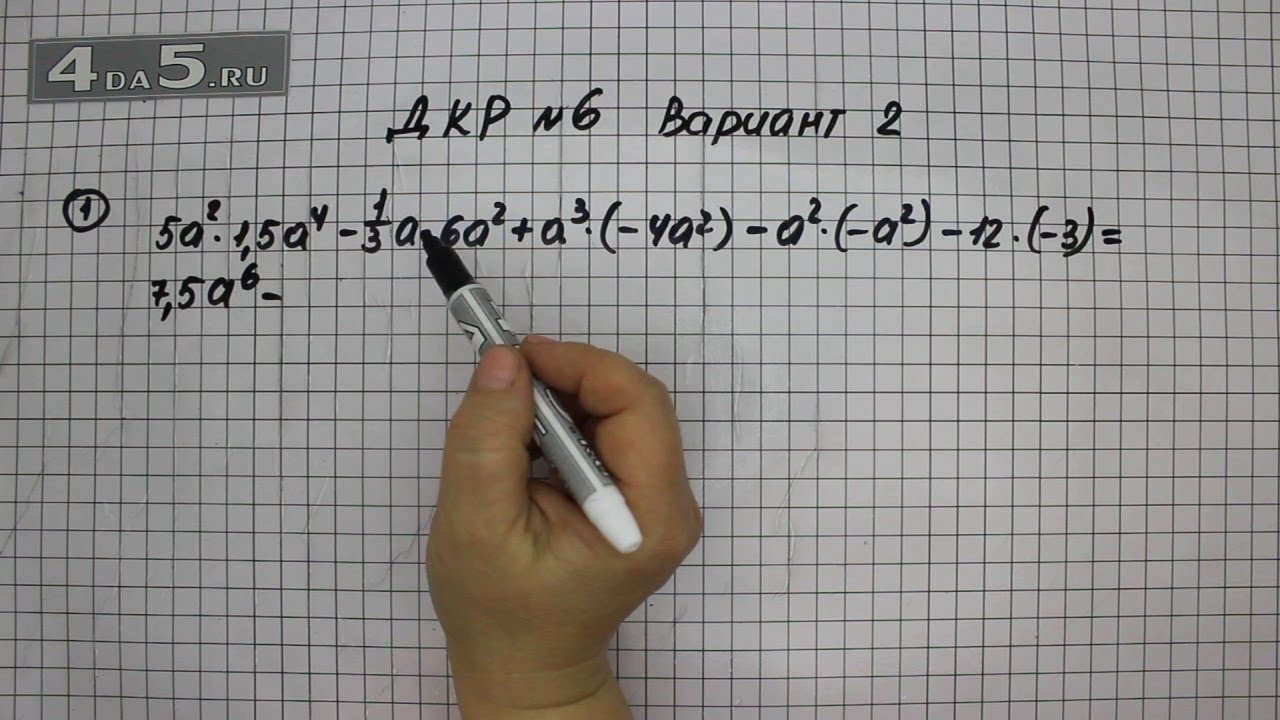 4DA5.RU
ДКР №6 Вариант 2
① 5a²·1,5a⁴ - 1/3a·6a² + a³·(-4a²) - a²·(-a²) - 12·(-3) =
7,5a⁶ -